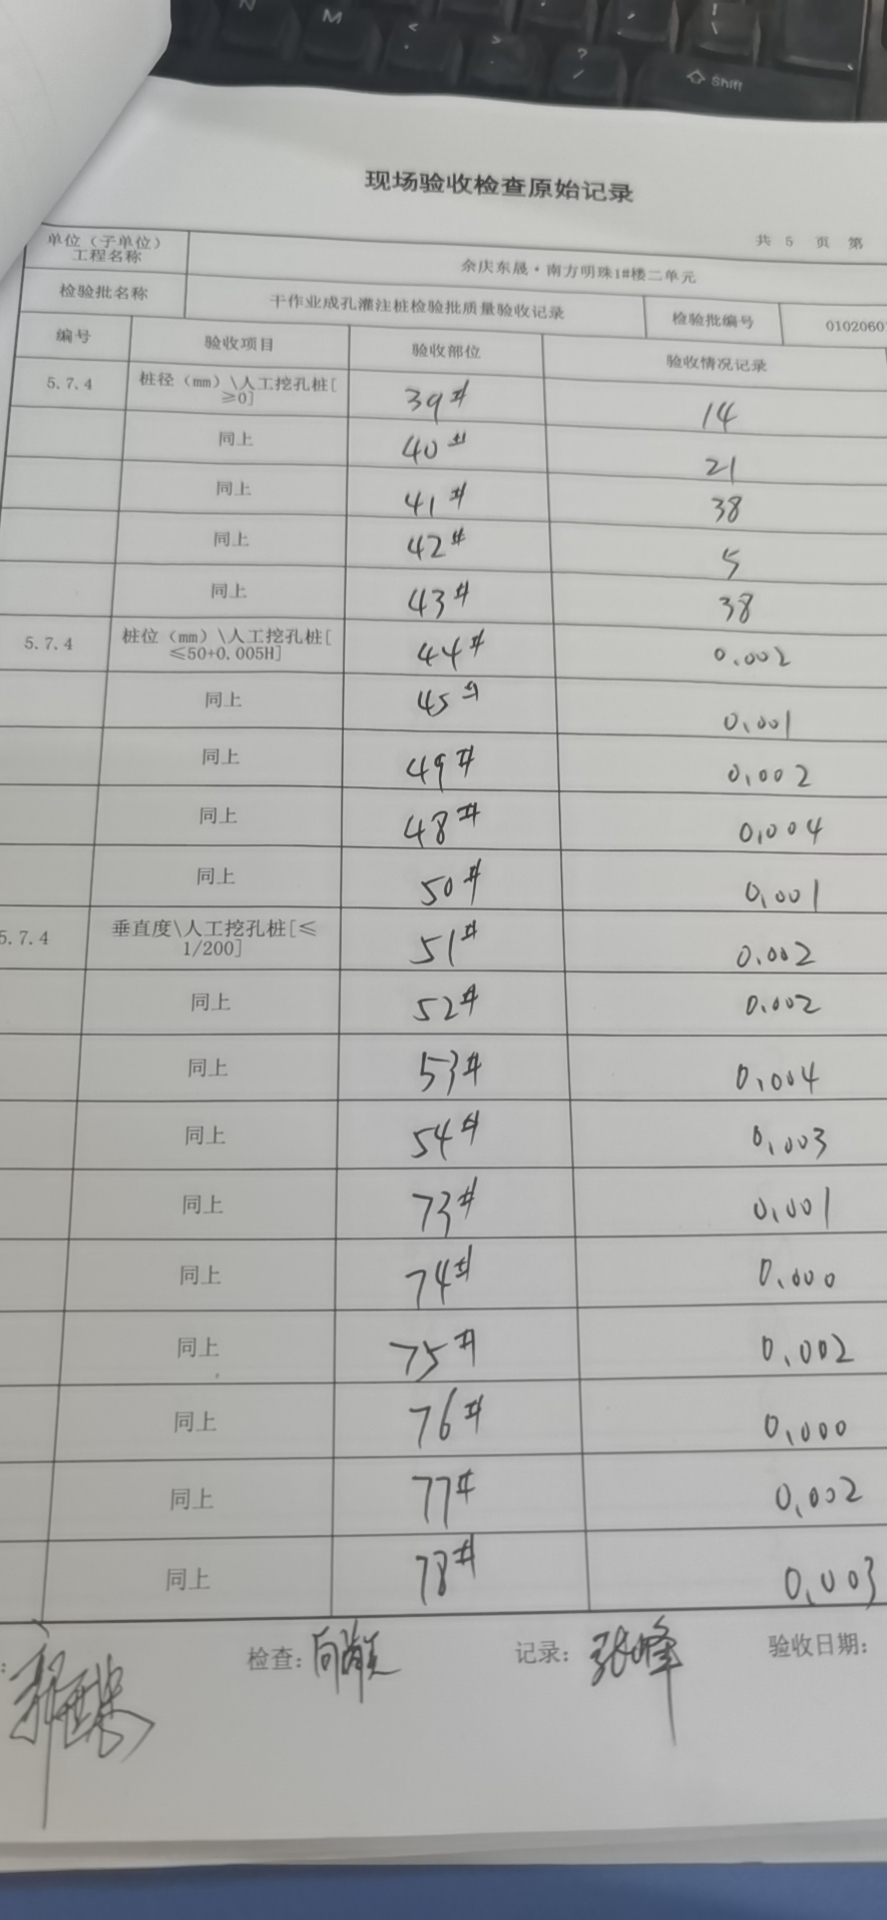 N M < , > . ? / ! \ Shift
现场验收检查原始记录
共 5 页 第
单位（子单位）
工程名称 余庆东晟·南方明珠1#楼二单元
检验批名称 干作业成孔灌注桩检验批质量验收记录 检验批编号 01020601
编号 验收项目 验收部位 验收情况记录
5.7.4 桩径（mm）\人工挖孔桩[
≥0] 39# 14
同上 40# 21
同上 41# 38
同上 42# 5
同上 43# 38
5.7.4 桩位（mm）\人工挖孔桩[
≤50+0.005H] 44# 0.002
同上 45# 0.001
同上 49# 0.002
同上 48# 0.004
同上 50# 0.001
5.7.4 垂直度\人工挖孔桩[≤
1/200] 51# 0.002
同上 52# 0.002
同上 53# 0.004
同上 54# 0.003
同上 73# 0.001
同上 74# 0.000
同上 75# 0.002
同上 76# 0.000
同上 77# 0.002
同上 78# 0.003
: 检查: 记录: 张峰 验收日期: